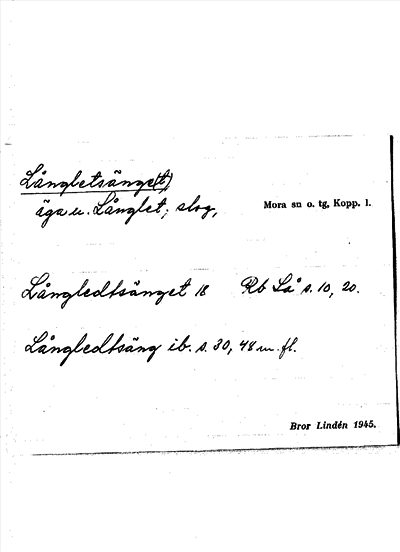 Långletsänge(t)
äga u. Långlet; slog,
Mora sn o. tg, Kopp. l.
Långledtsänget 18 Rb Så s. 10, 20.
Långledtsäng ib. s. 30, 48 m. fl.
Bror Lindén 1945.